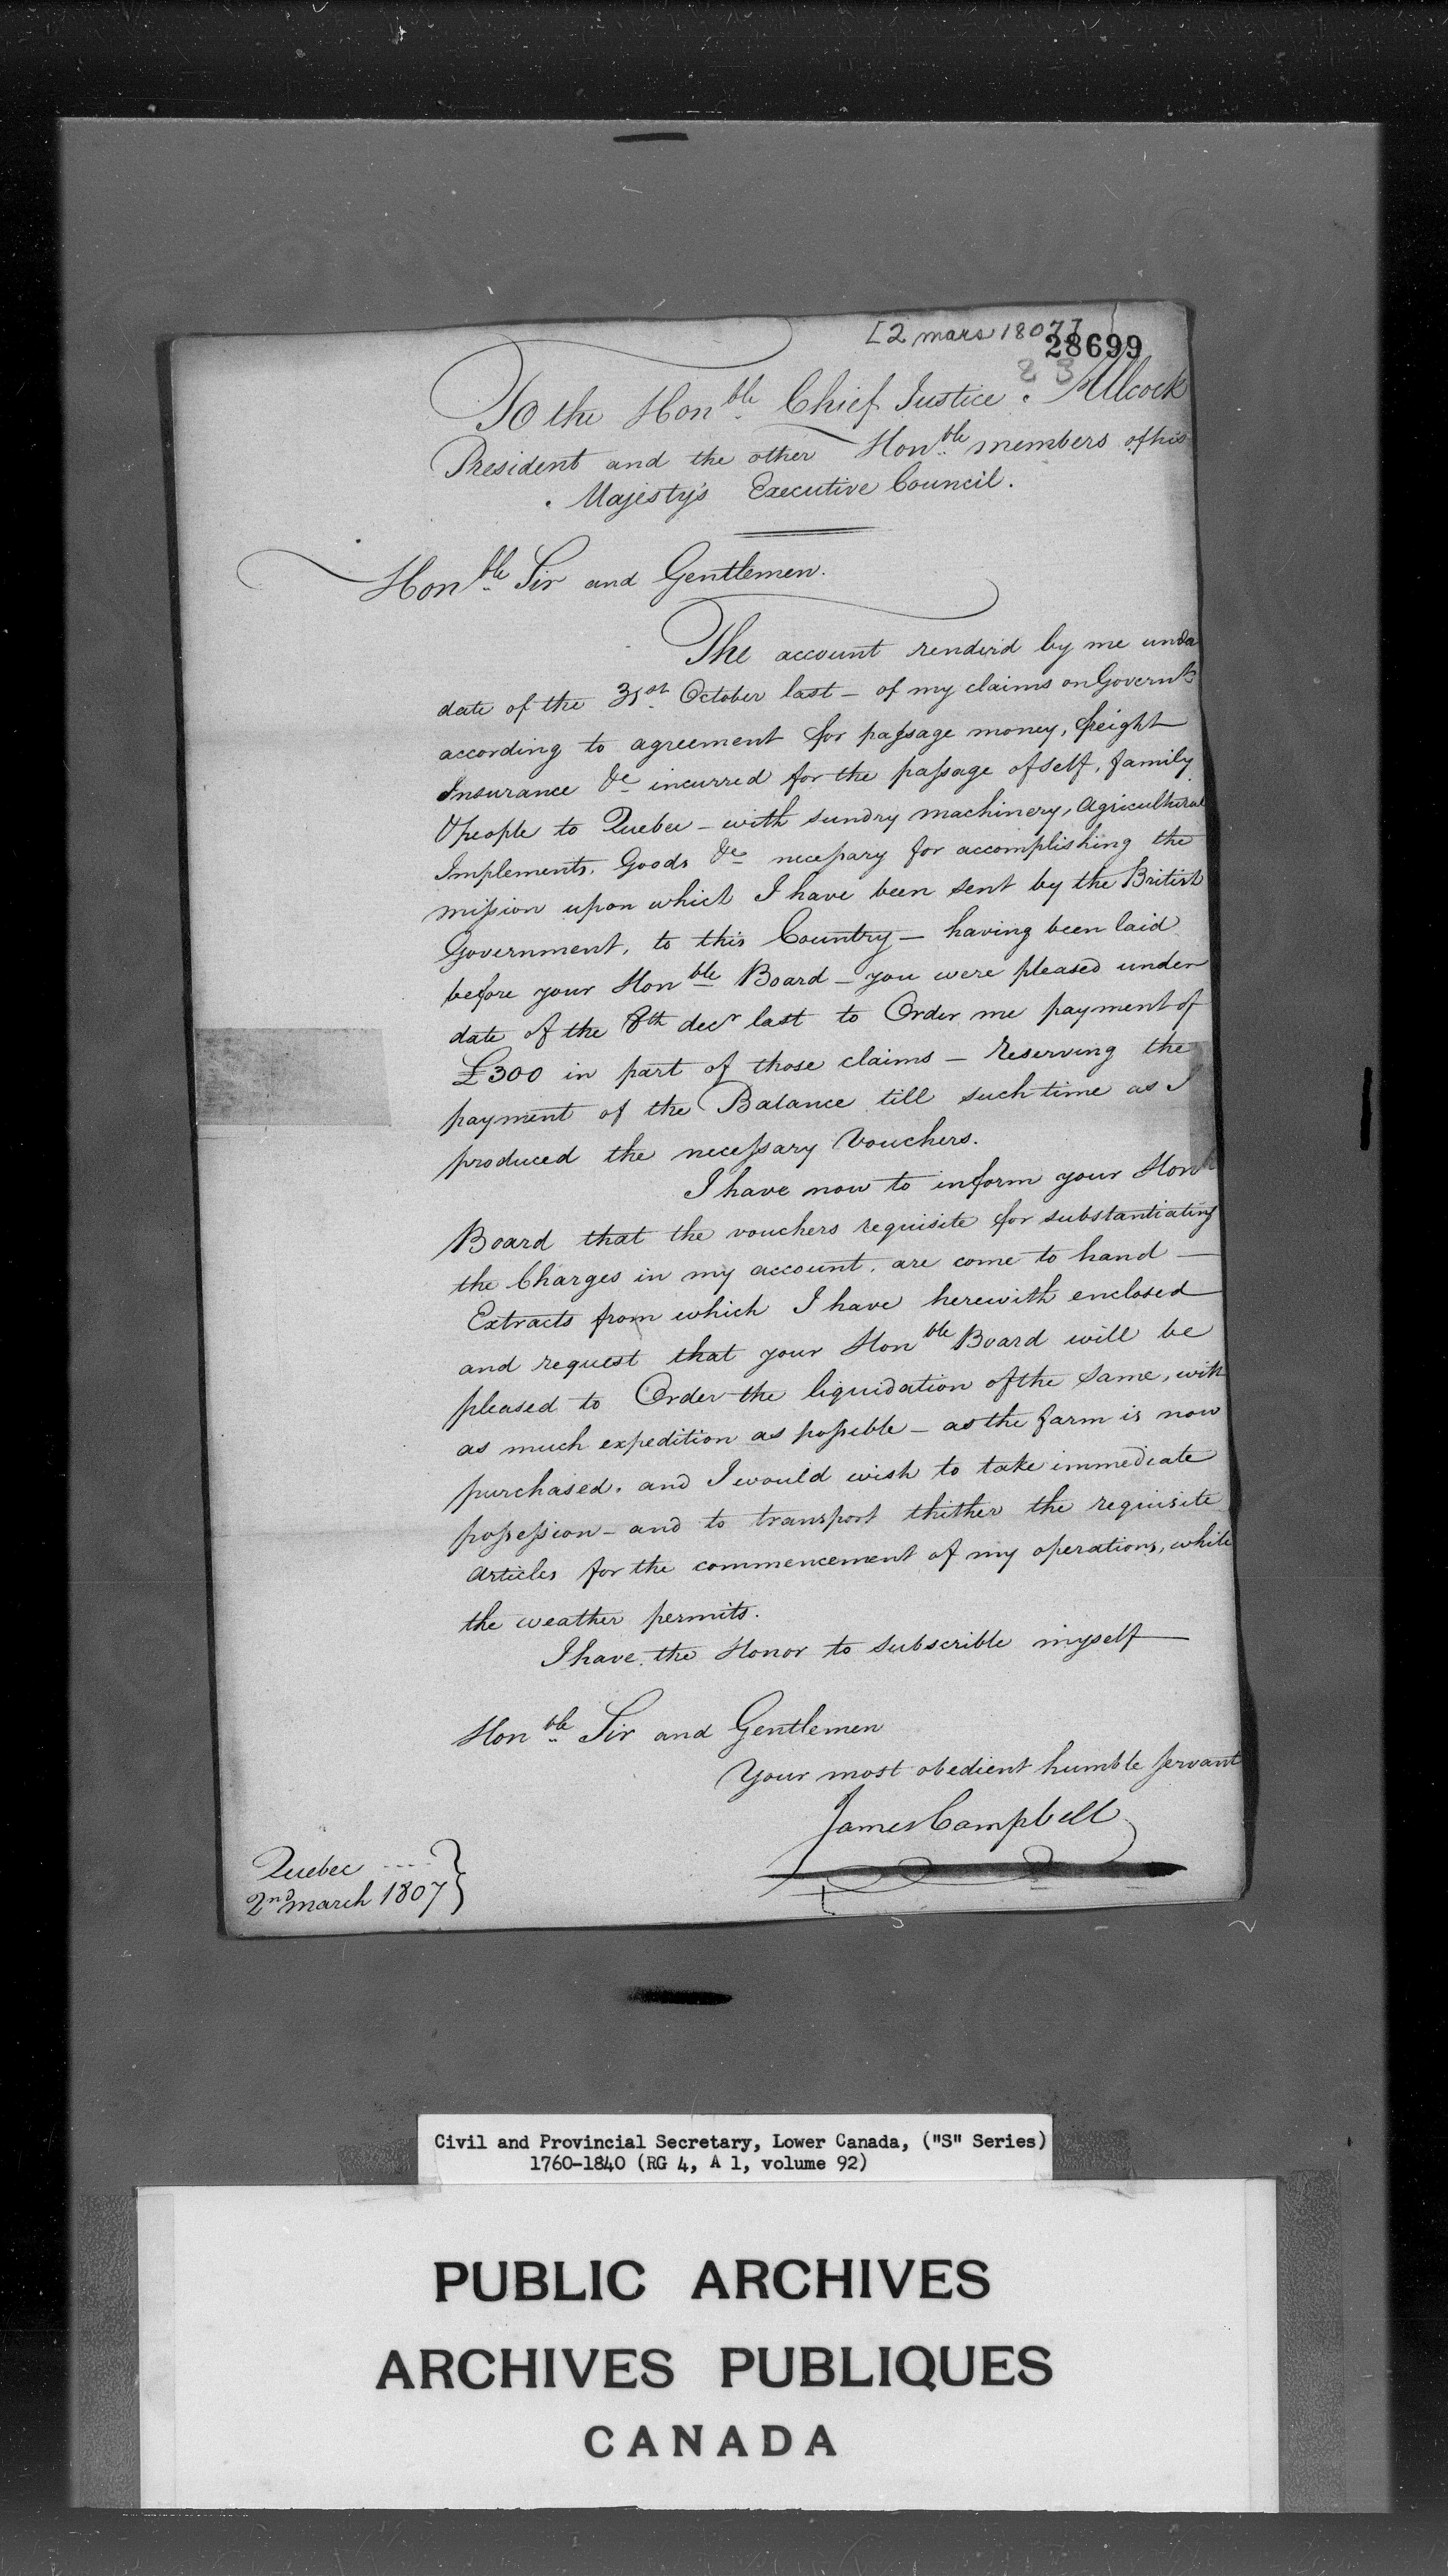 [2 mars 1807]
28699
To the Honble Chief Justice Allcock
President and the other Honble members of his
Majesty's Executive Council.
Honble Sir and Gentlemen.
The account renderd by me unde
date of the 31st October last – of my claims on Governt
according to agreement for passage money, freight
Insurance &c incurred for the passage of self, family
& people to Quebec – with sundry machinery, Agricultural
Implements, Goods &c necessary for accomplishing the
mission upon which I have been sent by the British
Government, to this Country – having been laid
before your Honble Board – you were pleased under
date of the 8th decr last to Order me payment of
£300 in part of those claims – reserving the
payment of the Balance till such time as I
produced the necessary Vouchers.
I have now to inform your Hon
Board that the vouchers requisite for substantiating
the Charges in my account, are come to hand –
Extracts from which I have herewith enclosed
and request that your Honble Board will be
pleased to Order the liquidation of the same, with
as much expedition as possible – as the farm is now
purchased, and I would wish to take immediate
possession – and to transport thither the requisite
articles for the commencement of my operations, while
the weather permits.
I have the Honor to subscrible myself
Honble Sir and Gentlemen
Your most obedient humble servant
James Campbell
Quebec ....
2nd march 1807 }
Civil and Provincial Secretary, Lower Canada, ("S" Series)
1760-1840 (RG 4, A 1, volume 92)
PUBLIC ARCHIVES
ARCHIVES PUBLIQUES
CANADA